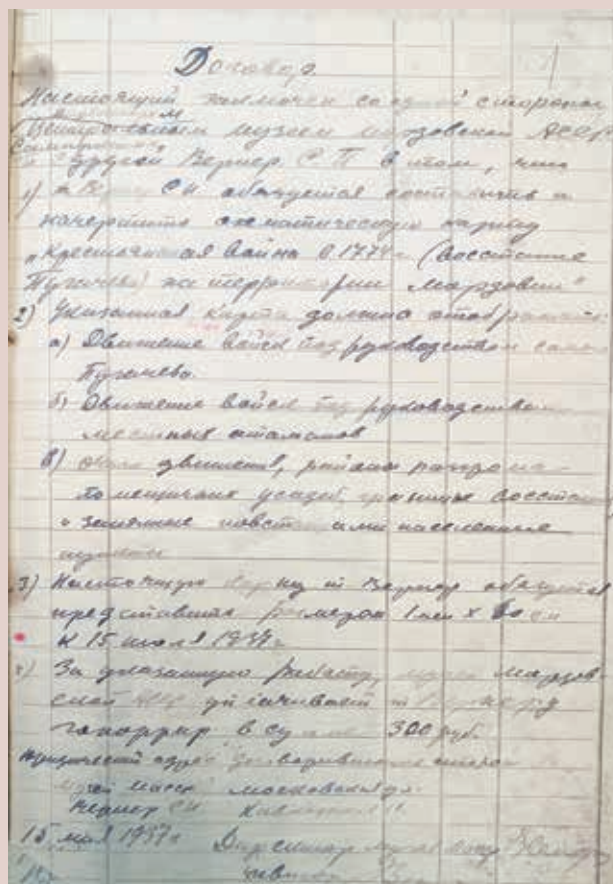 Договор
Настоящий заключен с одной стороны
Центральным музеем Мордовской АССР
с другой Вернер С. П. в том, что
1) т. Вернер СП обязуется составить и
начертить схематическую карту
„Крестьянская война в 1774 г (восстание
Пугачева) на территории Мордовии"
2) Указанная карта должна отображать
а) Движение войск под руководством самого
Пугачева
б) Движение войск под руководством
местных атаманов
в) движений, района погрома
помещичьих усадеб, границы восстания
и занятые повстанцами населенные
пункты
3) Настоящую карту т Вернер обязуется
представить размером 1 мет х 80 см
к 15 июля 1937 г
За указанную работу музей Мордов-
ской АССР уплачивает т Вернер
гонорар в сумме 300 руб.
Юридический адрес договорившихся сторон
музей Московская
Вернер СП
15 мая 1937 г Директор музея